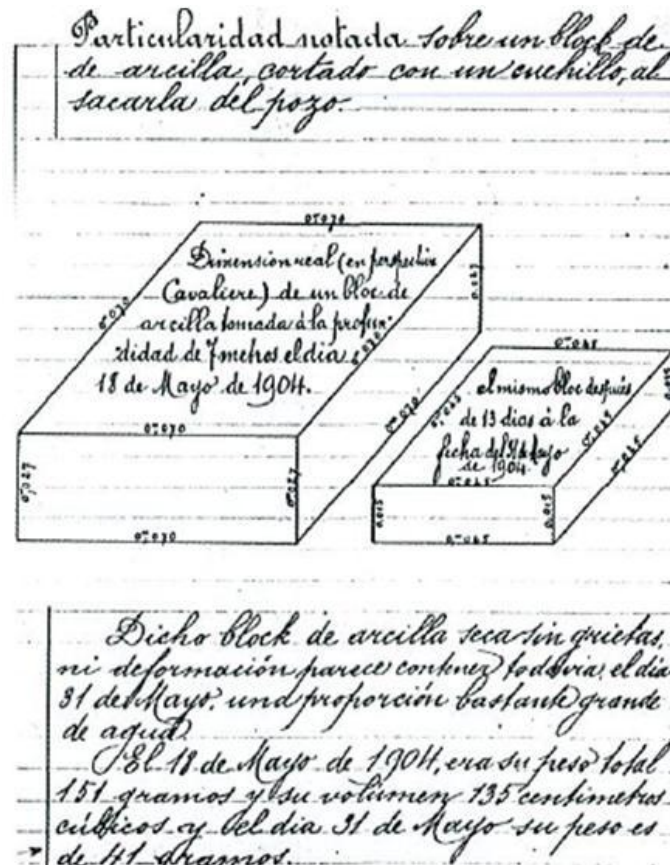 Particularidad notada sobre un block de
de arcilla, cortado con un cuchillo, al
sacarla del pozo.
0m070
Dimension real (en perspective
Cavaliere) de un bloc de
arcilla tomada á la profun-
didad de 7 metros el dia
18 de Mayo de 1904.
0m070
0m070
0m027
0m070
0m070
0m027
0m027
0m070
0m045
el mismo bloc después
de 13 dias á la
fecha del 31 de Mayo
de 1904
0m045
0m045
0m045
0m045
0.015
0.015
0m045
Dicho block de arcilla seca sin grietas,
ni deformación parece contener todavia, el dia
31 de Mayo, una proporción bastante grande
de agua.
El 18 de Mayo de 1904, era su peso total
151 gramos y su volumen 135 centimetros
cúbicos y el dia 31 de Mayo su peso es
de 41 gramos.